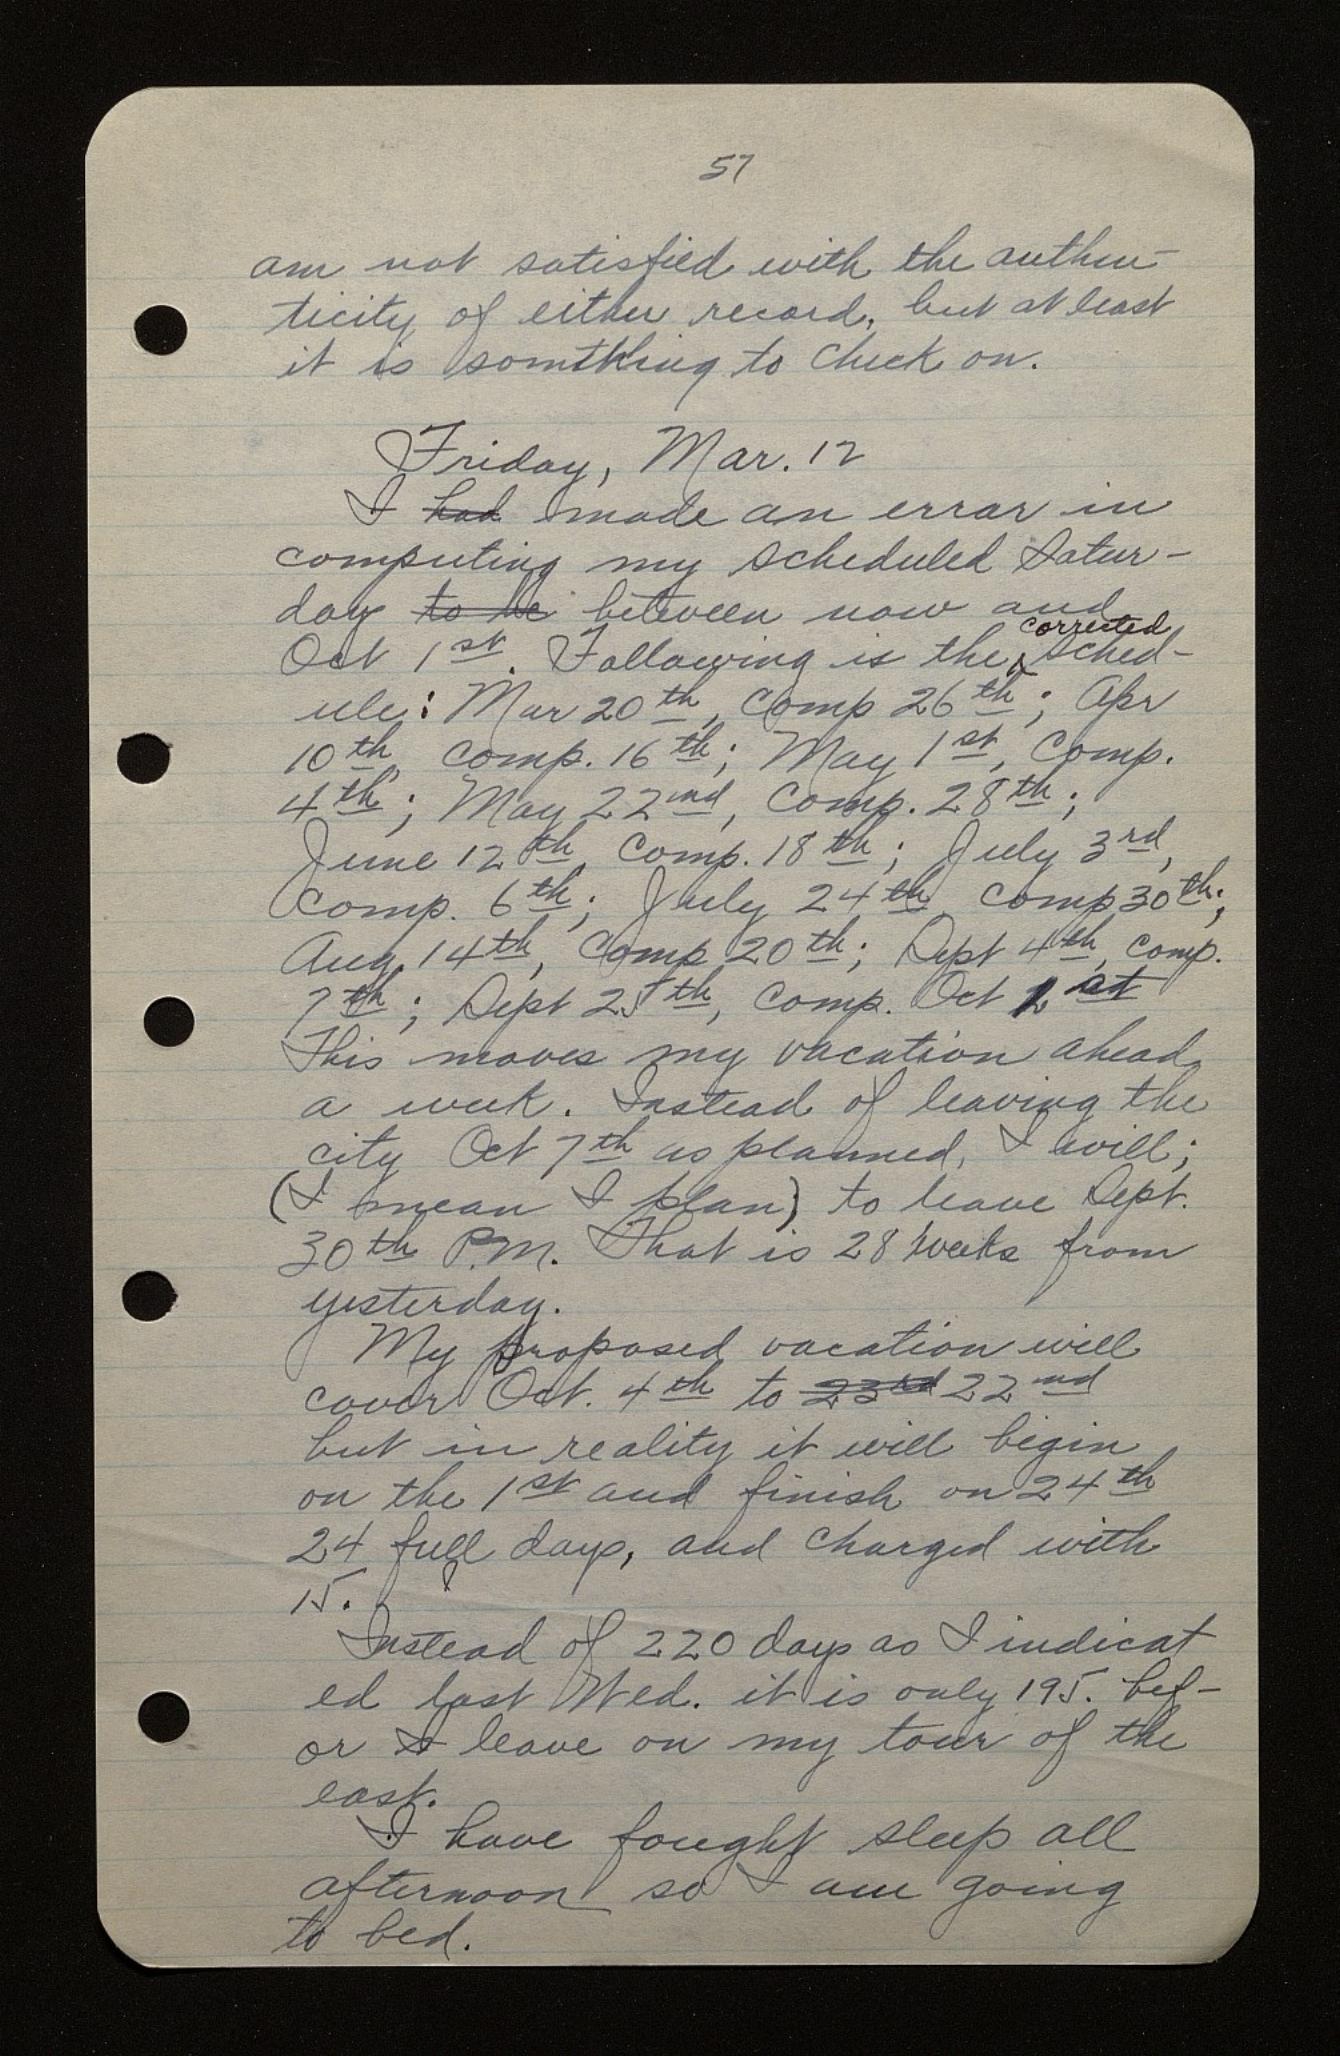 57
am not satisfied with the authen-
ticity of either record, but at least
it is something to check on.
Friday, Mar. 12
I had made an error in
computing my scheduled Satur-
day to be between now and
corrected
Oct 1st. Following is the sched-
ule: Mar 20th, Comp 26th; Apr
10th, comp. 16th; May 1st, Comp.
4th; May 22nd, Comp. 28th;
June 12th, Comp. 18th; July 3rd,
Comp. 6th; July 24th, Comp 30th;
Aug 14th, Comp 20th; Sept 4th, comp.
7th; Sept 25th, Comp. Oct 1st
This moves my vacation ahead
a week. Instead of leaving the
city Oct 7th as planned, I will;
(I mean I plan) to leave Sept.
30th P.M. That is 28 weeks from
yesterday.
My proposed vacation will
cover Oct. 4th to 23rd 22nd
but in reality it will begin
on the 1st and finish on 24th
24 full days, and charged with
15.
Instead of 220 days as I indicat
ed last Wed. it is only 195. bef-
or I leave on my tour of the
east.
I have fought sleep all
afternoon so I am going
to bed.